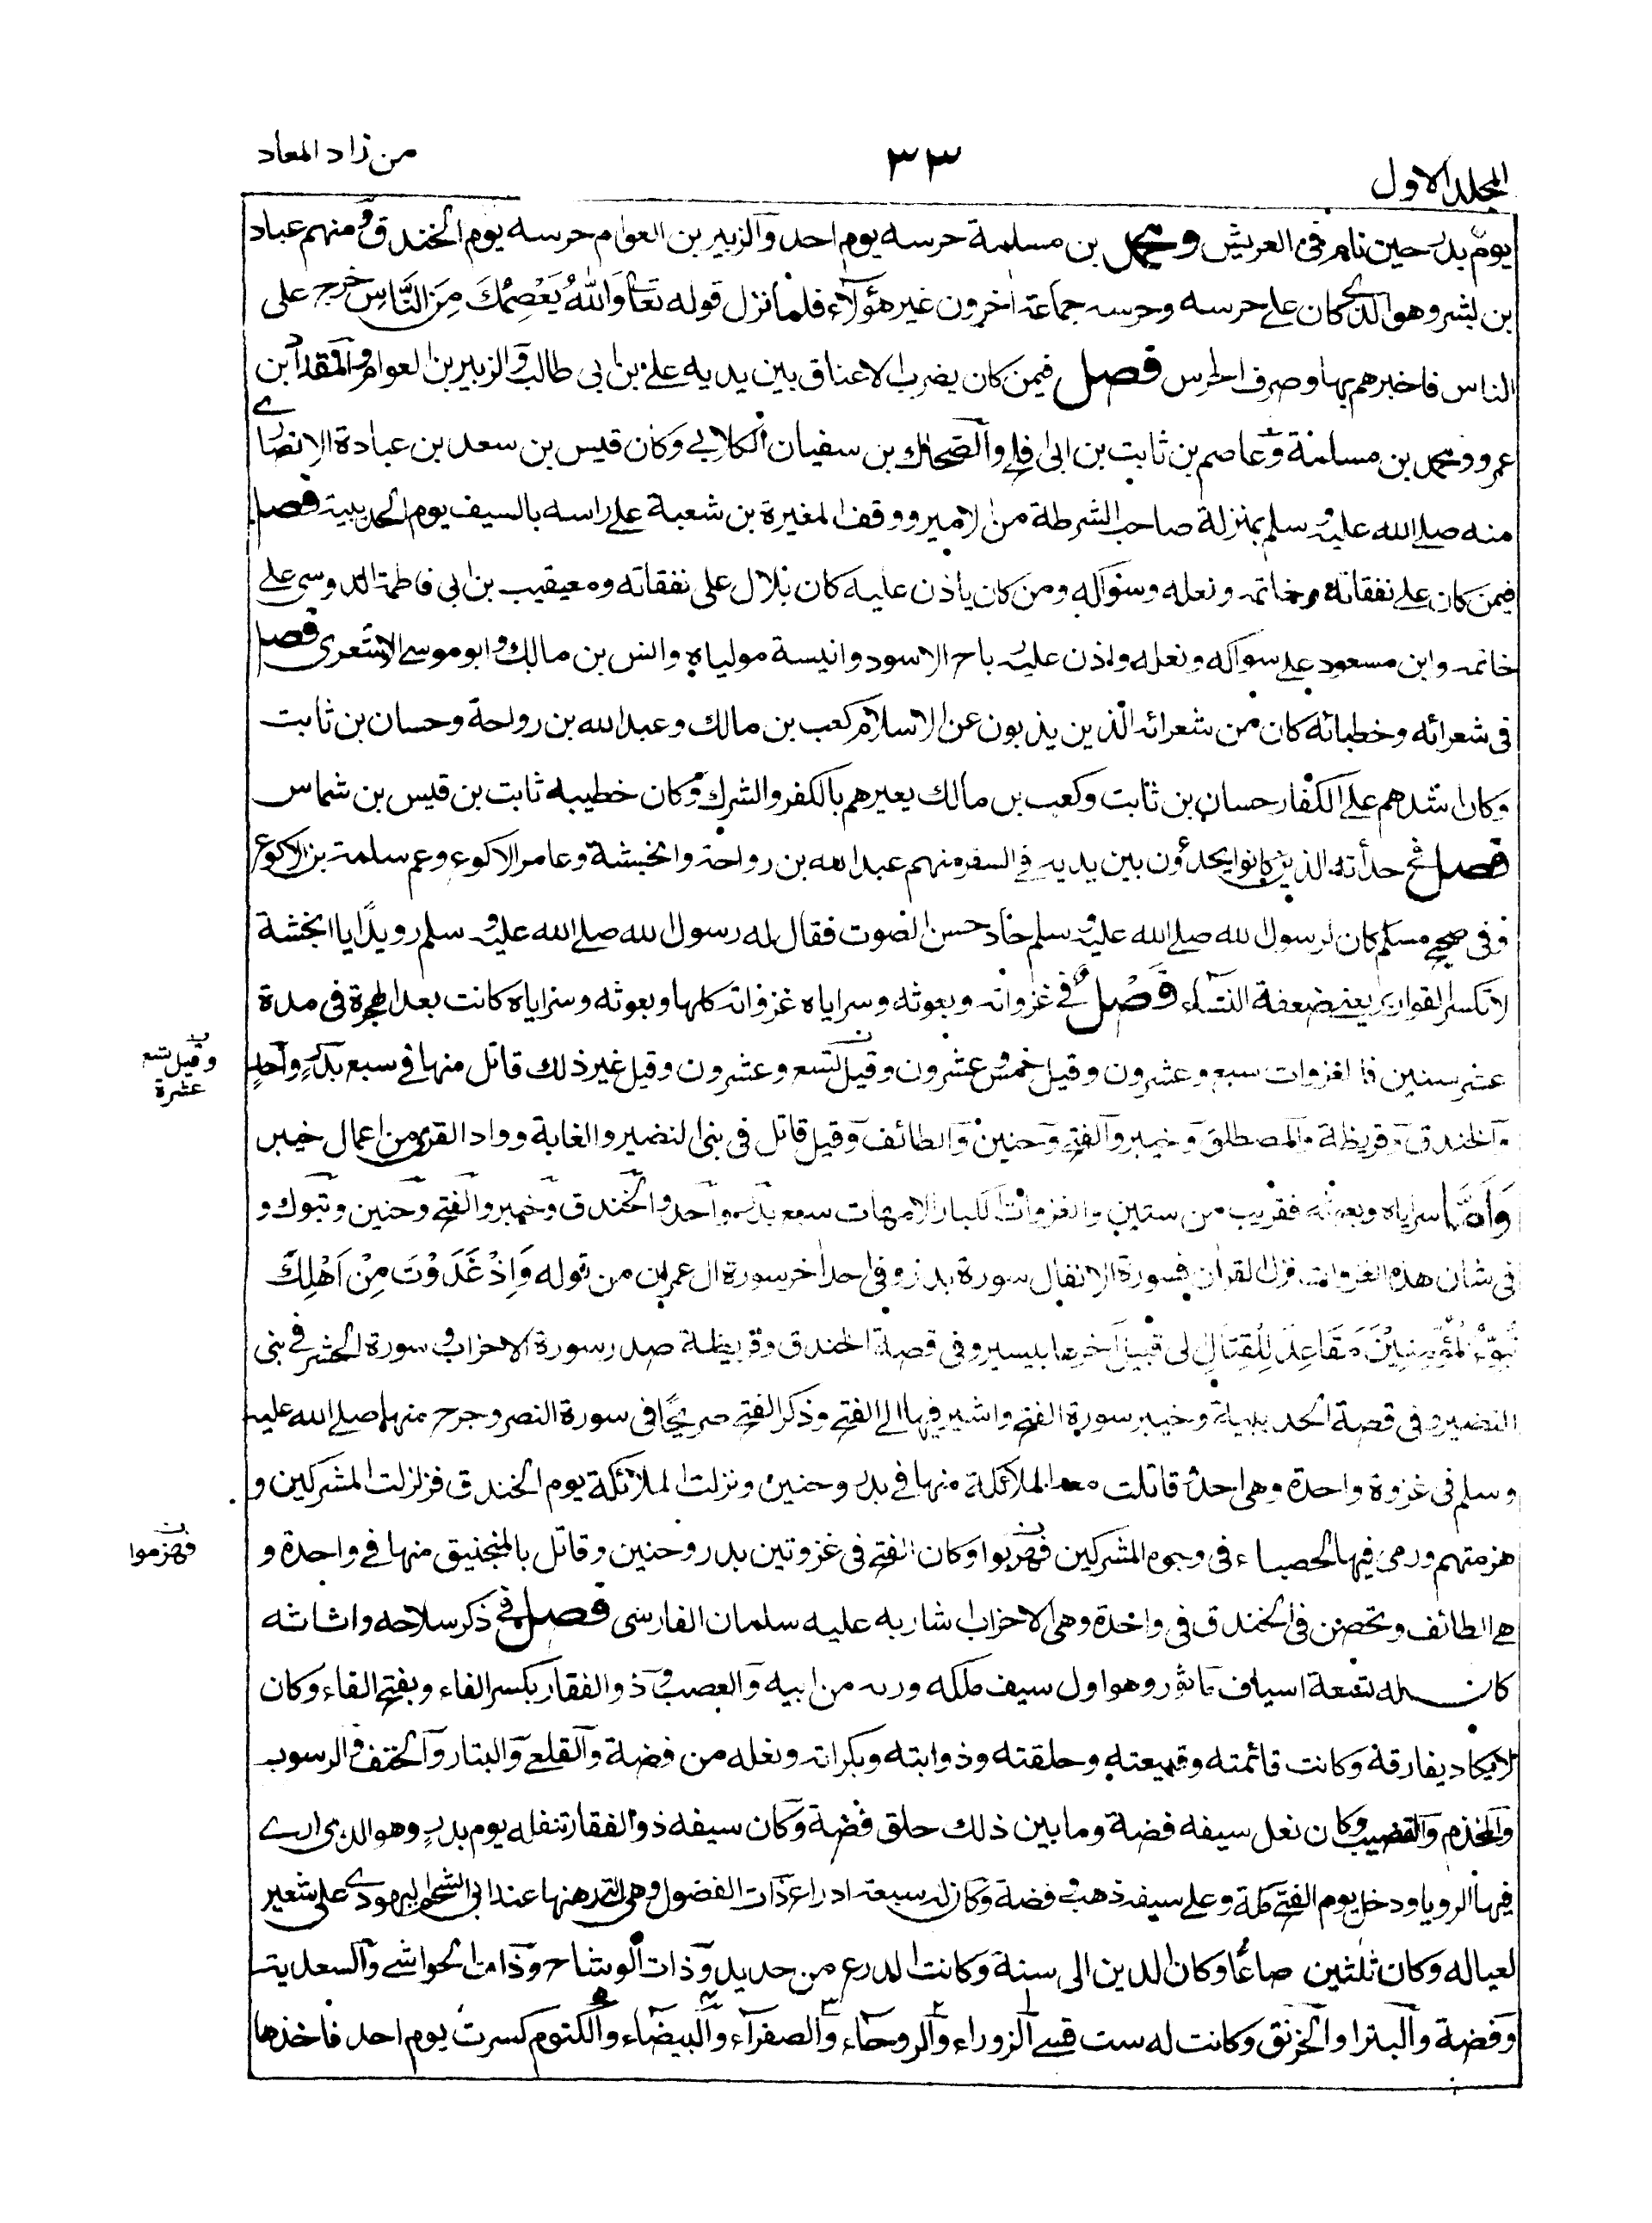 المجلد الاول
٣٣
من زاد المعاد
يوم بدر حين نام فى العريش ومحمد بن مسلمة حرسه يوم احد والزبير بن العوام حرسه يوم الخندق ومنهم عباد
بن بشر وهو الذى كان على حرسه وحرسه جماعة اخرون غير هؤلاء فلما نزل قوله تعالى وَاللهُ يَعْصِمُكَ مِنَ النَّاسِ خرج على
الناس فاخبرهم بها وصرف الحرس فصل فيمن كان يضرب الاعناق بين يديه على بن ابى طالب والزبير بن العوام والمقداد بن
عمرو ومحمد بن مسلمة وعاصم بن ثابت بن ابى فلح والضحاك بن سفيان الكلابى وكان قيس بن سعد بن عبادة الانصارى
منه صلى الله عليه وسلم بمنزلة صاحب الشرطة من الامير ووقف المغيرة بن شعبة على راسه بالسيف يوم الحديبية فصل
فيمن كان على نفقاته وخاتمه ونعله وسواكه ومن كان ياذن عليه كان بلال على نفقاته ومعيقيب بن ابى فاطمة الدوسى على
خاتمه وابن مسعود على سواكه ونعله واذن عليه رباح الاسود وانيسة مولياه وانس بن مالك وابو موسى الاشعرى فصل
فى شعرائه وخطبائه كان من شعرائه الذين يذبون عن الاسلام كعب بن مالك وعبد الله بن رواحة وحسان بن ثابت
وكان اشدهم على الكفار حسان بن ثابت وكعب بن مالك يعيرهم بالكفر والشرك وكان خطيبه ثابت بن قيس بن شماس
فصل فى حداته الذين كانوا يحدؤن بين يديه فى السفر منهم عبد الله بن رواحة وانجشة وعامر الاكوع وعم سلمة بن الاكوع
وفى صحيح مسلم كان لرسول الله صلى الله عليه وسلم حاد حسن الصوت فقال له رسول الله صلى الله عليه وسلم رويدًا يا انجشة
لا تكسر القوارير يعنى ضعفة النساء فصل فى غزواته وبعوثه وسراياه غزواته كلها وبعوثه وسراياه كانت بعد الهجرة فى مدة
عشر سنين فالغزوات سبع وعشرون وقيل خمس عشرون وقيل تسع وعشرون وقيل غير ذلك قاتل منها فى سبع بدرٍ واُحدٍ
وقيل تسع
عشرة
والخندق وقريظة والمصطلق وخيبر والفتح وحنين والطائف وقيل قاتل فى بنى النضير والغابة وواد القرى من اعمال خيبر
وَاَمَّا سراياه وبعوثه فقريب من ستين والغزوات الكبار الامهات سبع بدر واحد والخندق وخيبر والفتح وحنين وتبوك و
فى شان هذه الغزوات نزل القران فسورة الانفال سورة بدر وفى احد اخر سورة ال عمران من قوله وَاِذْ غَدَوْتَ مِنْ اَهْلِكَ
تُبَوِّئُ الْمُؤْمِنِيْنَ مَقَاعِدَ لِلْقِتَالِ الى قبيل اخرها بيسير وفى قصة الخندق وقريظة صدر سورة الاحزاب وسورة الحشر فى بنى
النضير وفى قصة الحديبية وخيبر سورة الفتح واشير فيها الى الفتح وذكر الفتح صريحًا فى سورة النصر وجرح منها صلى الله عليه
وسلم فى غزوة واحدة وهى احد قاتلت معه الملائكة منها فى بدر وحنين ونزلت الملائكة يوم الخندق فزلزلت المشركين و
هزمتهم ورمى فيها الحصباء فى وجوه المشركين فهربوا وكان الفتح فى غزوتين بدر وحنين وقاتل بالمنجنيق منها فى واحدة و
فهزموا
هى الطائف وتحصن فى الخندق فى واحدة وهى الاحزاب اشار به عليه سلمان الفارسى فصل فى ذكر سلاحه واثاثه
كان له تسعة اسياف ماثور وهو اول سيف ملكه ورثه من ابيه والعصب وذو الفقار بكسر الفاء وبفتح الفاء وكان
لا يكاد يفارقه وكانت قائمته وقبيعته وحلقته وذوابته وبكراته ونعله من فضة والقلعى والبتار والحتف والرسوب
والمخذم والقضيب وكان نعل سيفه فضة وما بين ذلك حلق فضة وكان سيفه ذو الفقار تنفله يوم بدرٍ وهو الذى ارى
فيها الرويا ودخل يوم الفتح مكة وعلى سيفه ذهب وفضة وكان له سبعة ادراع ذات الفضول وهى التى رهنها عند ابى الشحم اليهودى على شعير
لعياله وكان ثلثين صاعًا وكان الدين الى سنة وكانت الدرع من حديد وذات الوشاح وذات الحواشى والسعدية
وفضة والبترا والخرنق وكانت له ست قسى الزوراء والروحاء والصفراء والبيضاء والكتوم كسرت يوم احد فاخذها